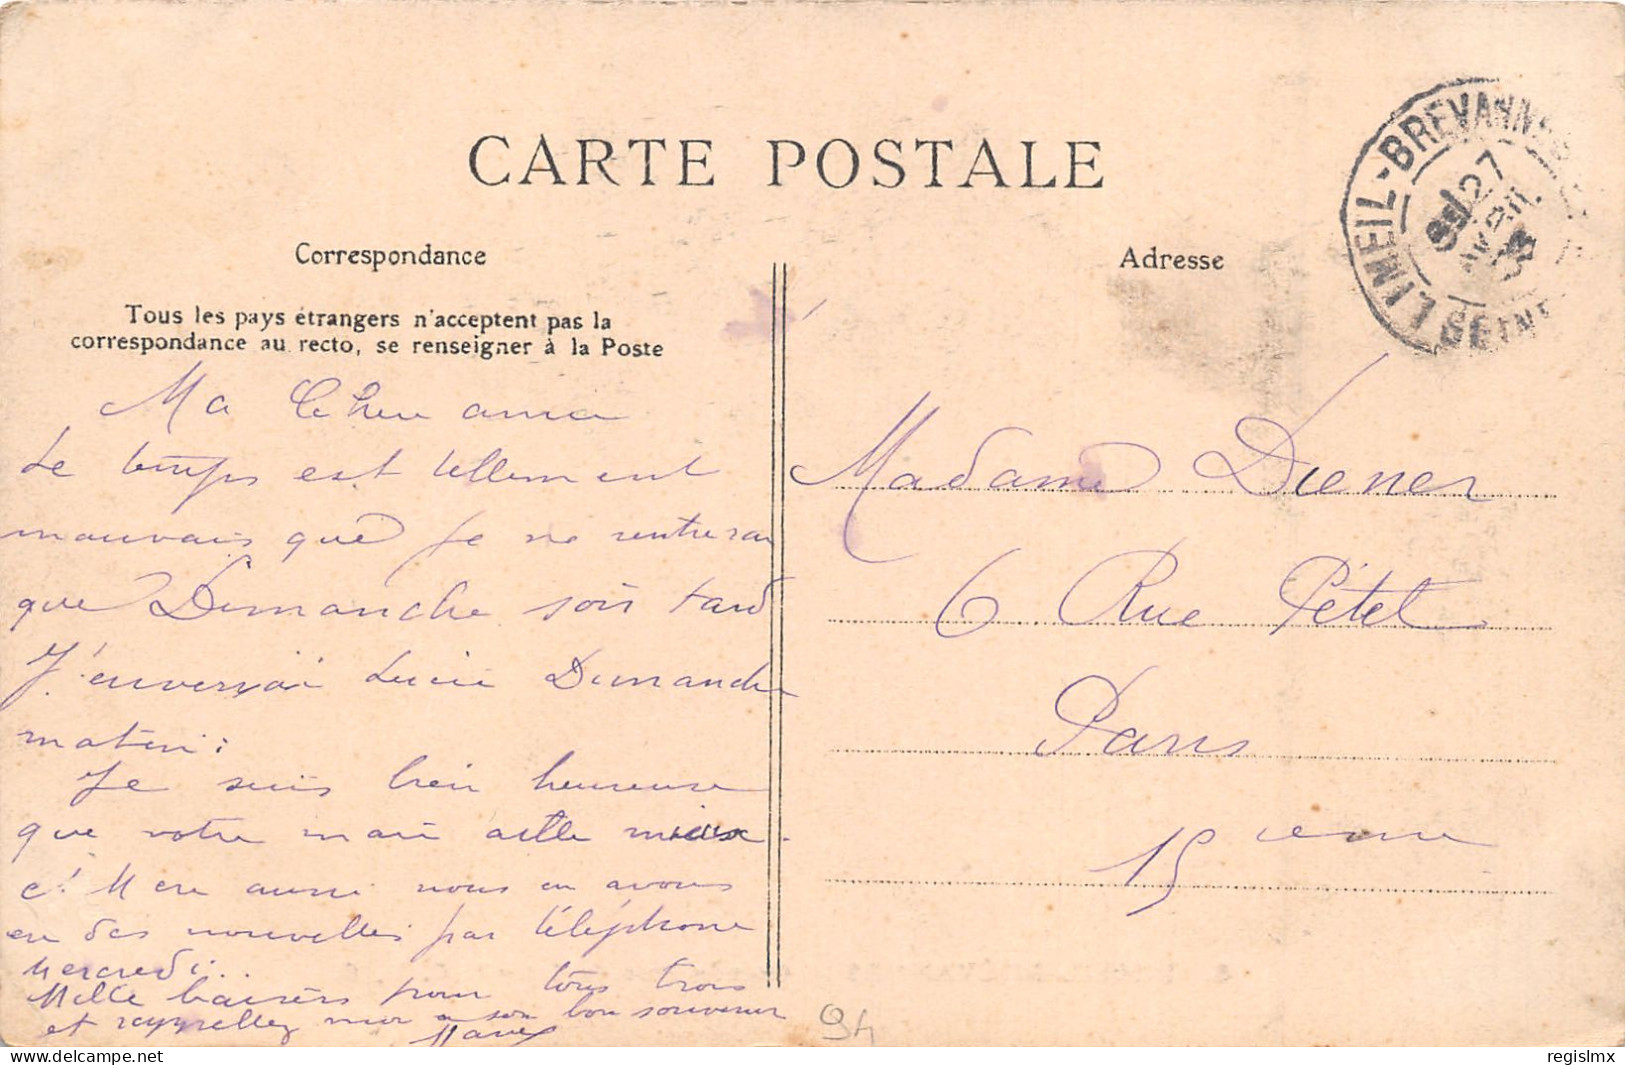 CARTE POSTALE
Correspondance
Tous les pays étrangers n'acceptent pas la
correspondance au recto, se renseigner à la Poste
Adresse
LIMEIL-BREVANNES
27
AVRIL
SEINE
Ma
Le temps est tellement
mauvais que je ne rentrerai
que Dimanche soir tard
J'enverrai Lucie Dimanche
matin:
Je suis bien heureuse
que votre mari aille mieux.
aussi nous en avons
eu des nouvelles par téléphone
Mercredi..
Mille baisers pour tous trois
et rappellez moi a son bon souvenir
Madame Diener
6 Rue Pétel
Paris
15 eme
94
regislmx
delcampe.net